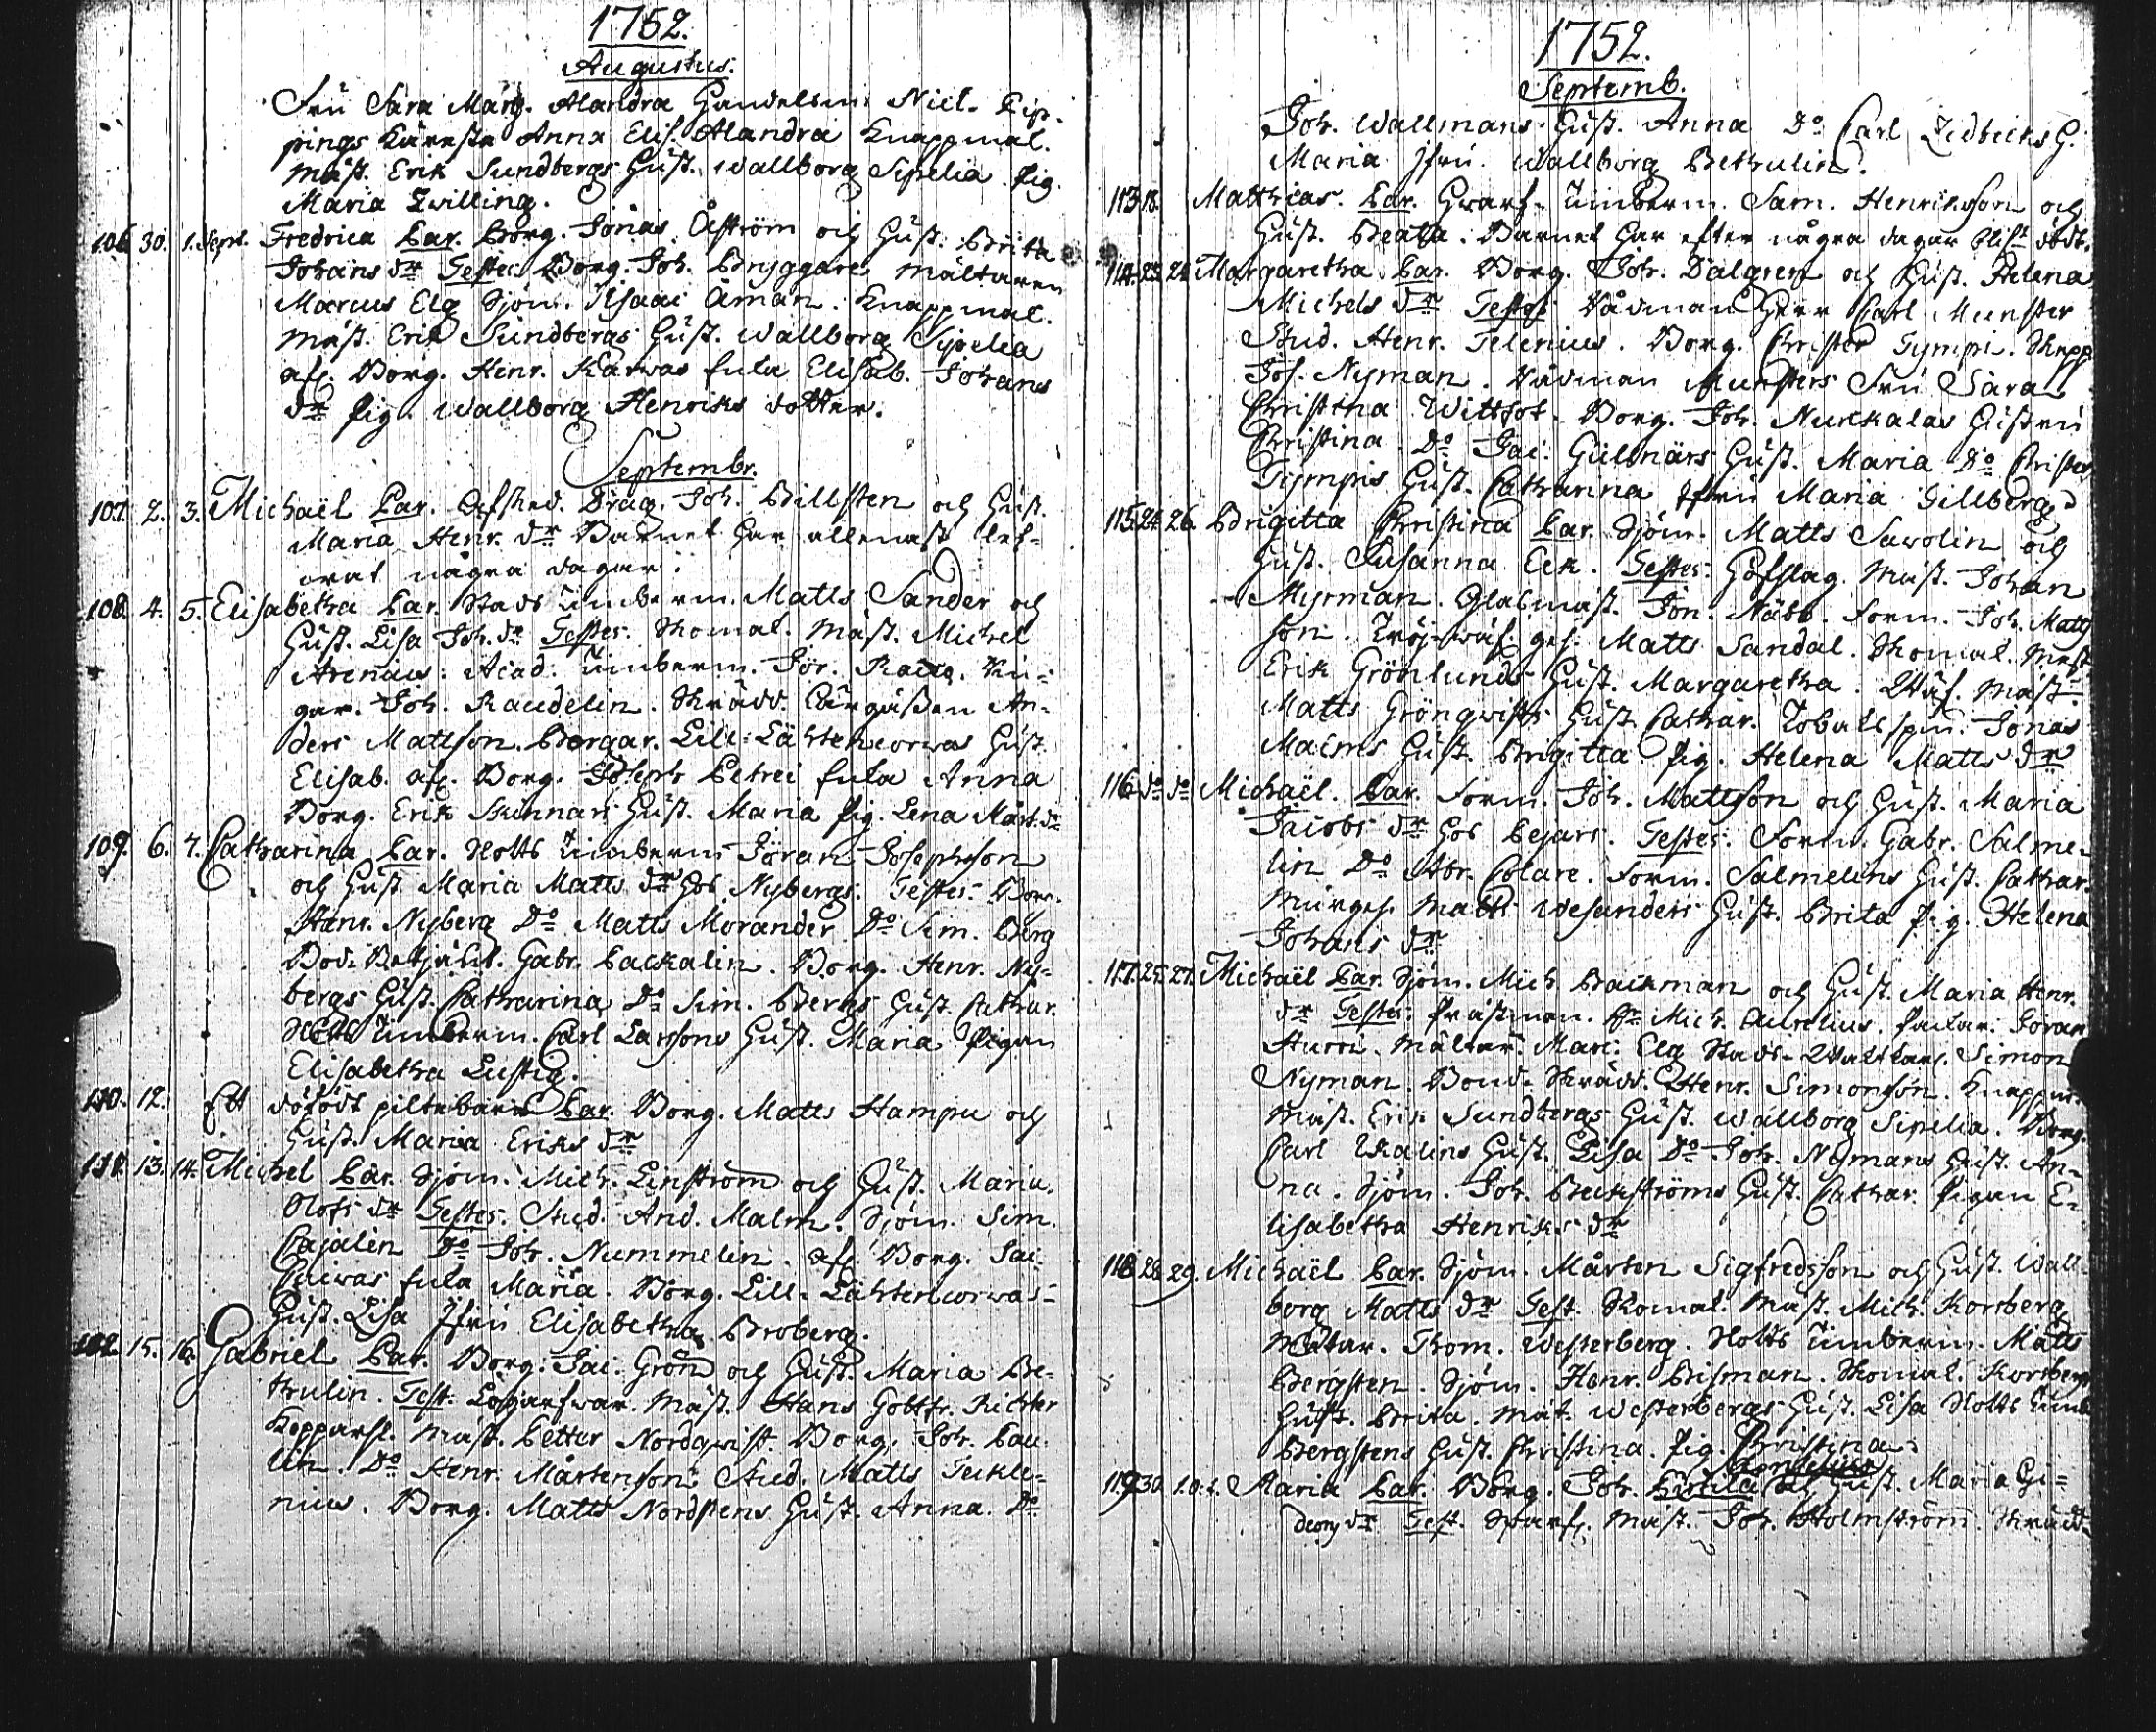 1752.
Augustus.
Fru Sara Marg. Alandra Handelsm. Niel. Kip-
pings Käresta Anna Elis. Alandra Knappmak.
Mäst. Erik Sundbergs Hust. Wallborg Sipelia. Pig.
Maria Zwilling.
106. 30. 1. Sept. Fredrica Par. Borg. Jonas Åström och Hust. Brita
Johans dr Testes Borg. Joh. Bryggare Mältaren
Marcus Elg Sjöm. Isaac Åman. Knappmak.
Mäst. Erik Sundbergs Hust. Wallborg Sipelia
afl. Borg. Henr. Karwas Enka Elisab. Johans
dr Pig. Wallborg Henriks dotter.
Septembr.
107. 2. 3. Michaël Par. Afsked. Drag. Joh. Billsten och Hust.
Maria Henr. dr Barnet har allenast lef-
wat några dagar.
108. 4. 5. Elisabetha Par. Stads Timberm. Matts Sander och
Hust. Lisa Joh. dr Testes. Skomak. Mäst. Michel
Arenius: Acad. Timberm. Jör. Kadd. Rin-
gar. Joh. Randelin. Skrädd. Lärgåssen An-
ders Mattson. Borgar. Lill-Lähtencorwas Hust.
Elisab. afl. Borg. Joseph Petrei Enka Anna
Borg. Erik Skinnars Hust. Maria Pig. Lena Mårt. dr
109. 6. 7. Catharina Par. Slotts Timberm. Jöran Josephsson
och Hust. Maria Matts dr hos Nybergs. Testes. Borg.
Henr. Nyberg Do Matts Morander Do Sim. Berg
Bod. Betjänt. Gabr. Backalin. Borg. Henr. Ny-
bergs Hust. Catharina Do Sim. Bergs Hust. Cathar.
Slotts Timberm. Carl Larssons Hust. Maria Pigan
Elisabetha Lustig.
110. 12. Ett dödfödt piltebarn Par. Borg. Matts Hampu och
Hust. Maria Eriks dr
111. 13. 14. Michel Par. Sjöm. Mich. Linström och Hust. Maria
Olofs dr Testes. Stud. And. Malm. Sjöm. Sim.
Cajalen Do Joh. Nummelin. afl. Borg. Jac.
Enka Maria. Borg. Lill-Lähtencorwas
Hust. Lisa Jfru Elisabetha Broberg.
112. 15. 16. Gabriel Par. Borg. Jac. Grön och Hust. Maria Be-
thulin. Test. Mäst. Hans Gottfr. Richter
Kopparsl. Mäst. Petter Nordqwist. Borg. Joh. Pau-
lin. Do Henr. Mårtensson. Stud. Matts Teckle-
nius. Borg. Matts Nordstens Hust. Anna. Do
1752.
Septemb.
Joh. Wallmans Hust. Anna Do Carl Zedbecks H.
Maria Jfru. Wallborg Bethulin.
113. 18. Matthias. Par. Hwarf-Timberm. Sam. Henriksson och
Hust. Beata. Barnet har efter några dagar blifit dödt.
114. 23. 24. Margaretha Par. Borg. Joh. Dalgren och Hust. Helena
Michels dr Testes Rådman Herr Carl Merster
Stud. Henr. Telenius. Borg. Christer Tympi. Skepp.
Jos. Nyman. Rådman Mersters Fru Sara
Christina Wittfot. Borg. Joh. Nurkalas Hustru
Christina Do Jac. Gülnärs Hust. Maria Do Christer
Tympis Hust. Catharina Jfru Maria Gillberg
115. 24. 26. Brigitta Christina Par. Sjöm. Matts Sawolin och
Hust. Susanna Eek. Testes. Hofslag. Mäst. Johan
Myrman. Glasmäst. Jon. Näbb. Form. Joh. Matt-
son. ges. Matts Sandal. Skomak. Mäst.
Erik Grönlunds Hust. Margaretha. Wäf. Mäst.
Matts Grönqwists Hust. Cathar. Tobaksspin. Jonas
Malms Hust. Brigitta Pig. Helena Matts dr
116. do do Michaël. Par. Form. Joh. Mattson och Hust. Maria
Jacobs dr hos Bejars. Testes. Form. Gabr. Salme-
lin Do Abr. Colare. Form. Salmelins Hust. Cathar.
Murges. Matts Wesanders Hust. Brita Pig. Helena
Johans dr
117. 25. 27. Michaël Par. Sjöm. Mich. Backman och Hust. Maria Henr.
dr Testes. Prästman. Hr Mich. Aurelius. Jöran
Hurri. Mältar. Marc. Elg Stads-Waktkarl. Simon
Nyman. Bond-Skrädd. Henr. Simonsson. Knappm.
Mäst. Eric Sundbergs Hust. Wallborg Sipelia. Borg.
Carl Walins Hust. Lisa Do Joh. Nymans Hust. An-
na. Sjöm. Joh. Beckströms Hust. Cathar. Pigan E-
lisabetha Henriks dr
118. 28. 29. Michaël Par. Sjöm. Mårten Sigfredsson och Hust. Wall-
borg Matts dr Test. Skomak. Mäst. Mich. Korsberg
Thom. Westerberg. Slotts Timberm. Matts
Bergsten. Sjöm. Henr. Bisman. Skomak. Korsbergs
Hust. Brita. Westerbergs Hust. Lisa Slotts Timb.
Bergstens Hust. Christina. Pig. Christina
119. 30. 1. Oct. Maria Par. Borg. Joh. och Hust. Maria Gi-
deons dr Test. Swarf. Mäst. Joh. Holmström. Skrädd.